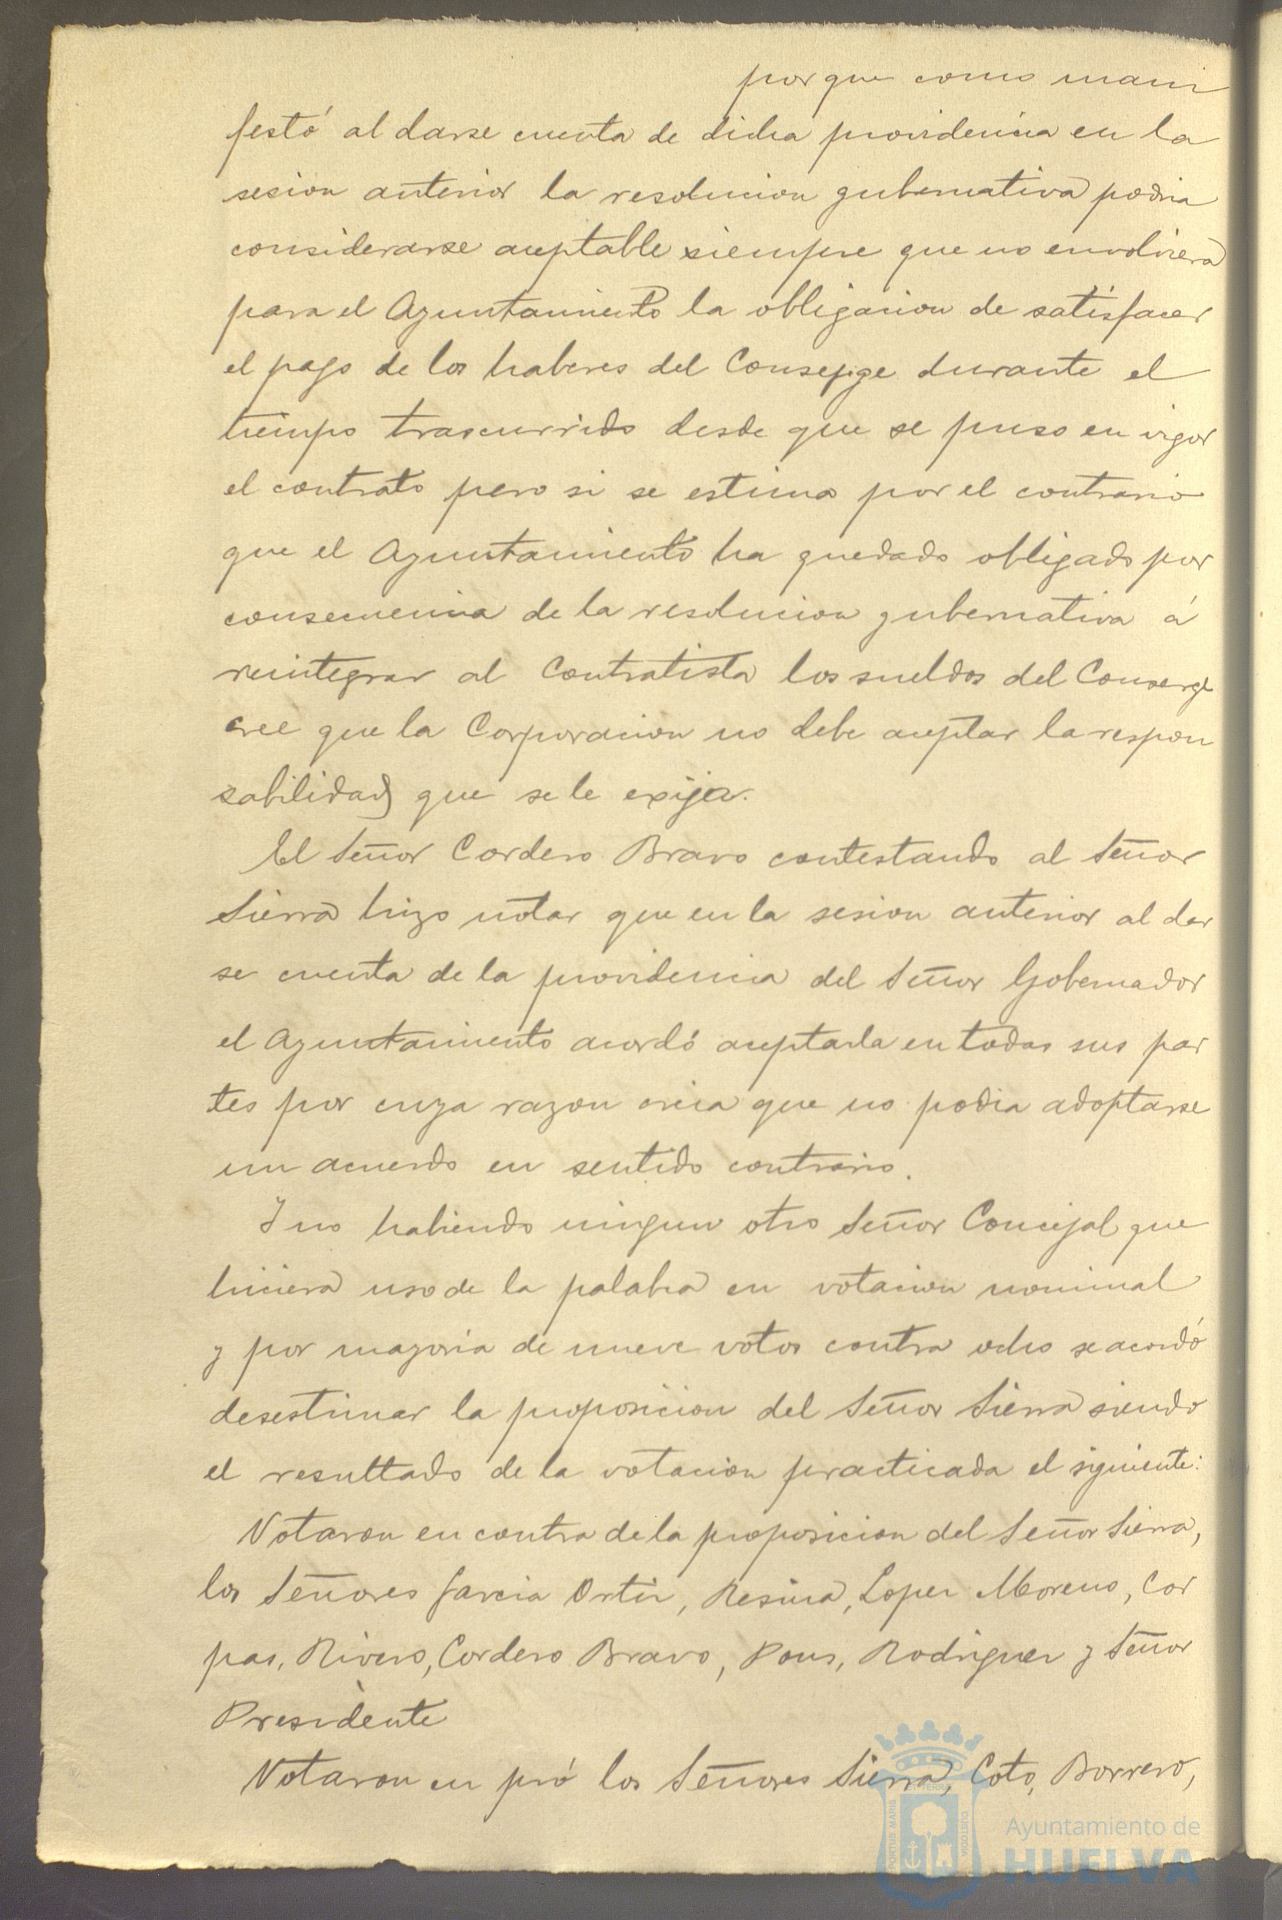 porque como mani
festó al darse cuenta de dicha providencia en la
sesion anterior la resolucion gubernativa podria
considerarse aceptable siempre que no envolviera
para el Ayuntamiento la obligacion de satisfacer
el pago de los haberes del Conserge durante el
tiempo trascurrido desde que se puso en vigor
el contrato pero si se estima por el contrario
que el Ayuntamiento ha quedado obligado por
consecuencia de la resolucion gubernativa á
reintegrar al Contratista los sueldos del Conserge
cree que la Corporacion no debe aceptar la respon
sabilidad que se le exija.
El Señor Cordero Bravo contestando al Señor
Sierra hizo notar que en la sesion anterior al dar
se cuenta de la providencia del Señor Gobernador
el Ayuntamiento acordó aceptarla en todas sus par
tes por cuya razon creia que no podia adoptarse
un acuerdo en sentido contrario.
Y no habiendo ningun otro Señor Concejal que
hiciera uso de la palabra en votacion nominal
y por mayoria de nueve votos contra ocho se acordó
desestimar la proposicion del Señor Sierra siendo
el resultado de la votacion practicada el siguiente:
Votaron en contra de la proposicion del Señor Sierra,
los Señores Garcia Ortiz, Resina, Lopez Moreno, Cor
pas, Rivero, Cordero Bravo, Pons, Rodriguez y Señor
Presidente
Votaron en pró los Señores Sierra, Coto, Borrero,
Ayuntamiento de
HUELVA